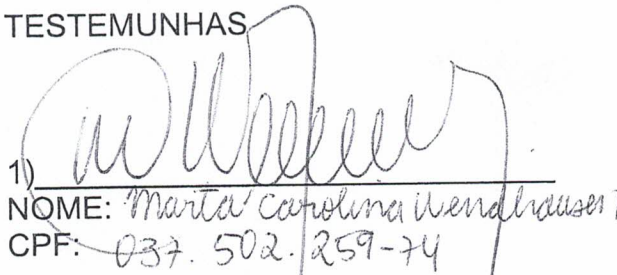 TESTEMUNHAS
1)
NOME: Marta Carolina Wendhausen
CPF: 037.502.259-74